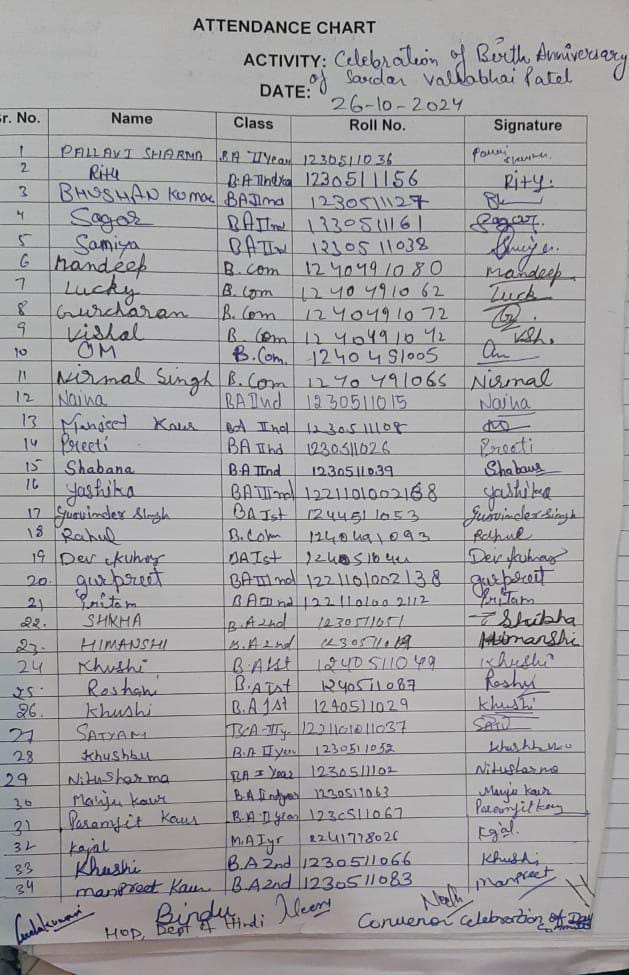 ATTENDANCE CHART
ACTIVITY: Celebration of Birth Anniversary
of Sardar Vallabhai Patel
DATE: 26-10-2024
r. No. Name Class Roll No. Signature
1 PALLAVI SHARMA BA II Year 1230511036
2 Ritu B.A IInd 1230511156 Rity.
3 BHUSHAN Kumar BA IInd 1230511127
4 Sagar BA IInd 1330511161 Sagar.
5 Samiya BA IInd 1330511038
6 Mandeep B.com 1240491080 Mandeep
7 Lucky B.Com 1240491062 Luck
8 Gurcharan B.Com 1240491072
9 Vishal B.Com 1240491042 Vsh.
10 OM B.Com. 1240491005 Om
11 Nirmal Singh B.Com 1240491065 Nirmal
12 Naina BA IInd 1230511015 Naina
13 Manjeet Kaur BA IInd 1230511108
14 Preeti BA IInd 1230511026 Preeti
15 Shabana B.A IInd 1230511039 Shabana
16 Yashika BA IIInd 1221101002168 Yashika
17 Gurvinder Singh BA Ist 1244511053 Gurvinder Singh
18 Rahul B.Com 1240491093 Rahul
19 Dev Kumar BA Ist Dev Kumar
20. gurpreet BA IIInd 1221101002138 gurpreet
21 Pritam BA IIInd 122110100 2112 Pritam
22. SHKHA B.A 2nd 1230511051 Shikha
23. HIMANSHI B.A 2nd 1230511019 Himanshi
24 Khushi B.A 1st 1240511049 Khushi
25. Roshani B.A Ist 1240511087 Roshni
26. Khushi B.A 1st 1240511029 Khushi
27 SATYAM
28 Khushbu B.A II year 1230511052 Khushbu
29 Nitu Sharma BA II Year 1230511102 Nitu Sharma
30 Manju Kaur B.A IInd year 1230511063 Manju Kaur
31 Paramjit Kaur B.A II year 1230511067 Paramjit Kaur
32 Kajal M.A I yr 2241778026 Kajal.
33 Khushi B.A 2nd 1230511066 Khushi
34 manpreet Kaur B.A 2nd 1230511083 Manpreet
Bindu
HOD, Dept of Hindi
Convenor Celebration of Day